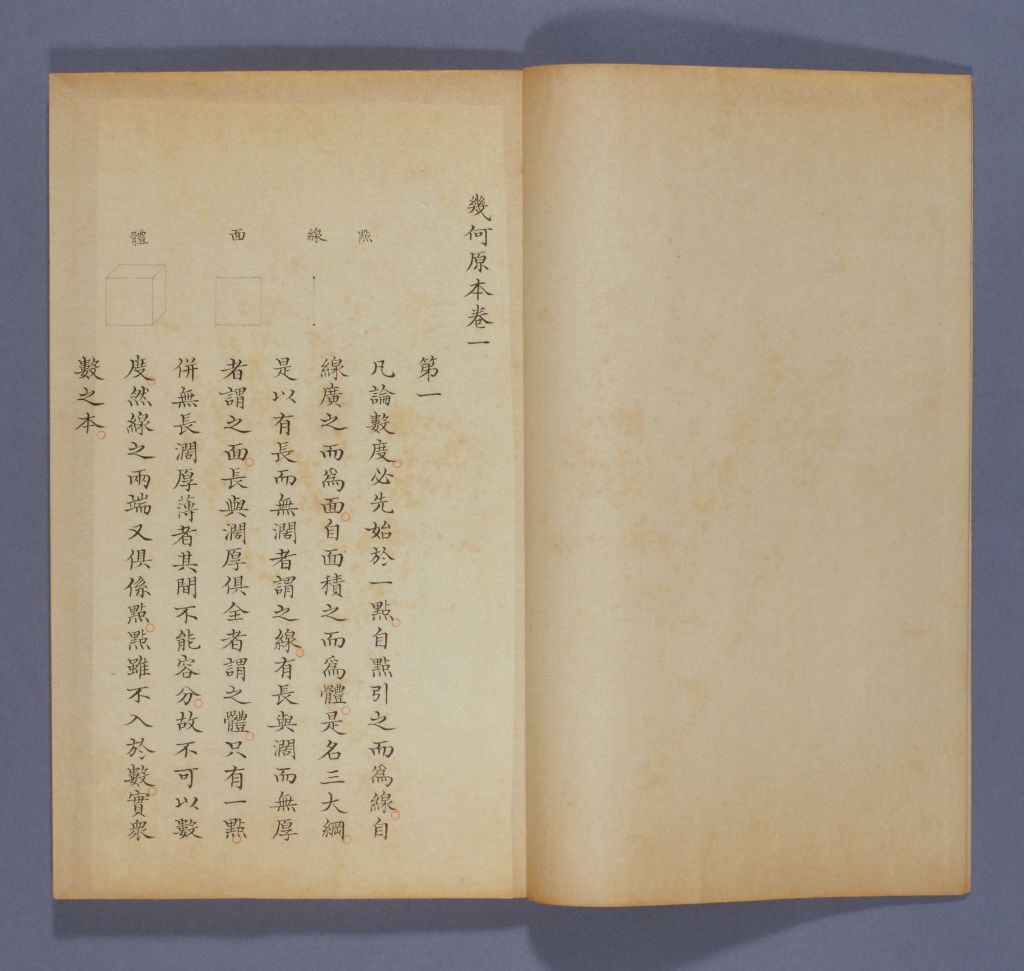 幾何原本卷一
點
線
面
體
第一
凡論數度。必先始於一點。自點引之而爲線。自
線廣之而爲面。自面積之而爲體。是名三大綱。
是以有長而無濶者謂之線。有長與濶而無厚
者謂之面。長與濶厚俱全者謂之體。只有一點。
併無長濶厚薄者其間不能容分。故不可以數
度。然線之兩端又俱係點。點雖不入於數。實衆
數之本。